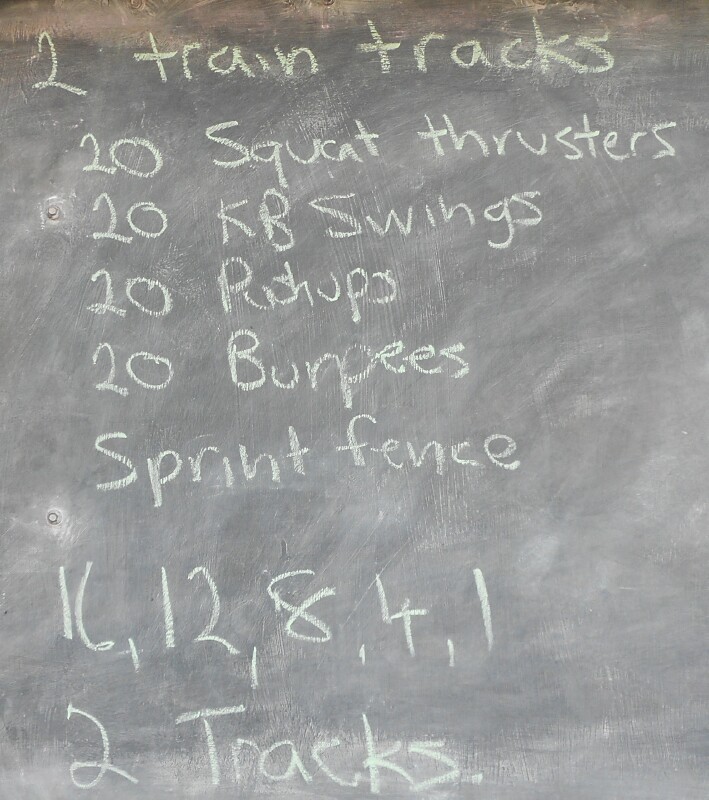 2 train tracks
20 Squat thrusters
20 KB Swings
20 Pushups
20 Burpees
Sprint fence
16, 12, 8, 4, 1
2 Tracks.